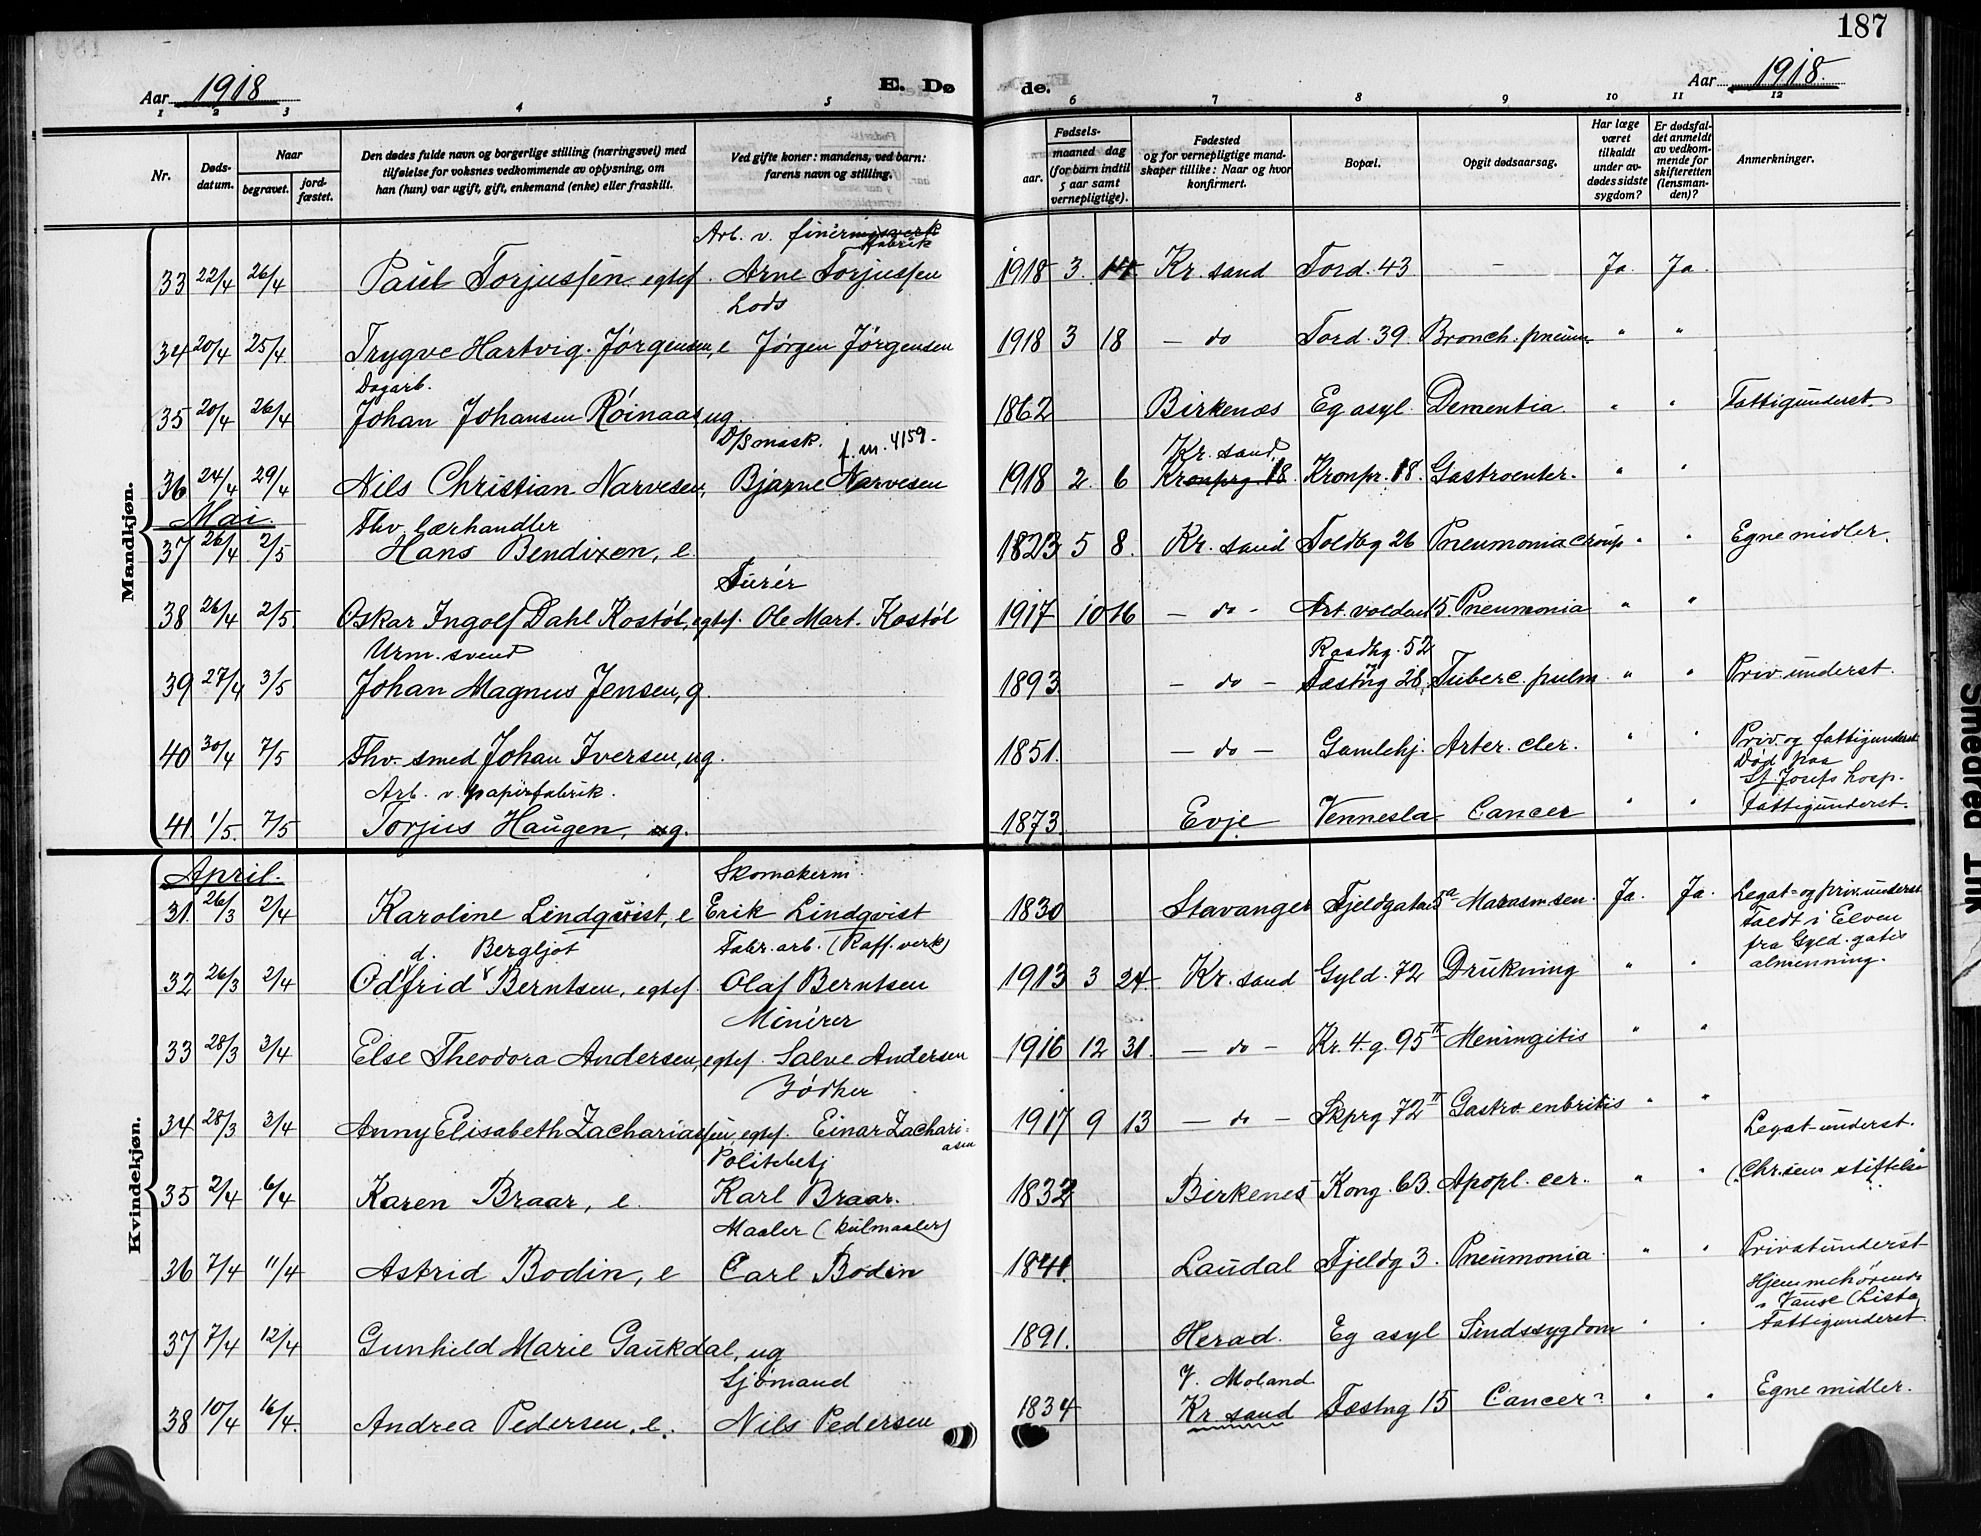 187
Aar 1918
E. Dø
de.
Aar 1918.
1 2 3 4 5 6 7 8 9 10 11 12
Nr.
Døds-
datum.
Naar
begravet.
jord-
fæstet.
Den dødes fulde navn og borgerlige stilling (næringsvei) med
tilføielse for voksnes vedkommende av oplysning, om
han (hun) var ugift, gift, enkemand (enke) eller fraskilt.
Ved gifte koner: mandens, ved barn:
farens navn og stilling.
Fødsels-
aar.
maaned dag
(for barn indtil
5 aar samt
vernepligtige).
Fødested
og for vernepligtige mand-
skaper tillike: Naar og hvor
konfirmert.
Bopæl.
Opgit dødsaarsag.
Har læge
været
tilkaldt
under av-
dødes sidste
sygdom?
Er dødsfal-
det anmeldt
av vedkom-
mende for
skifteretten
(lensman-
den)?
Anmerkninger.
Mandkjøn.
Arb. v. fineringsverk
fabrik
33 22/4 26/4 Paul Torjussen egtef. Arne Torjussen 1918 3 14 Kr. sand Tord. 43 - Ja Ja
Lods
34 20/4 25/4 Trygve Hartvig Jørgensen, e Jørgen Jørgensen 1918 3 18 - do Tord. 39 Bronch. pneum. " "
Dagarb.
35 20/4 26/4 Johan Johansen Røinaas ug 1862 Birkenæs Eg asyl. Dementia " " Fattigunderst.
D/S mask. f. m. 4159.
Kr. sand
36 24/4 29/4 Nils Christian Narvesen, Bjarne Narvesen 1918 2 6 Kronprg 18. Kronpr. 18. Gastroenter. " "
Mai.
Fhv. lærhandler
37 26/4 2/5 Hans Bendixen, e 1823 5 8. Kr. sand Toldbg 26 Pneumonia croup " " Egne midler.
Turér
38 26/4 2/5 Oskar Ingolf Dahl Kostøl, egtef. Ole Mart. Kostøl 1917 10 16 - do - Art. volden 15. Pneumonia " "
Urm. svend
Raadhg. 52
39 27/4 3/5 Johan Magnus Jensen, g 1893 - do - Fæstng 28, Tuberc. pulm " " Priv. underst.
40 30/4 7/5 Fhv. smed Johan Iversen, ug. 1851. - do - Gamlehj. Arter. cler. " " Priv. og fattigunderst
Død paa
St. Josefs hosp.
Arb. v. papirfabrik.
41 1/5. 7/5 Torjus Haugen, g. 1873 Evje Vennesla Cancer " " Fattigunderst.
Kvindekjøn.
April.
Skomakerm.
31. 26/3 2/4 Karoline Lindqvist, e Erik Lindqvist 1830 Stavanger Fjeldgaten 5a Marasm sen. Ja. Ja. Legat- og priv. underst
Faldt i Elven
fra Gyld. gates
almenning.
d. Bergljot Fabr. arb. (Raff. verk)
32 26/3 2/4 Odfrid Berntsen, egtef. Olaf Berntsen 1913 3 24. Kr. sand Gyld. 72 Drukning " "
Minérer
33 28/3 3/4 Else Theodora Andersen, egtef. Salve Andersen 1916 12 31. - do - Kr. 4. g. 95 II Meningitis " "
Bødker
34 28/3 3/4 Anny Elisabeth Zachariassen, egtef. Einar Zachari-
asen
1917 9 13 - do - Skprg 72 II Gastro enbritis " "
Legat-underst.
Politibetj
35 2/4 6/4 Karen Braar, e. Karl Braar. 1832 Birkenes Kong. 63. Apopl. cer. " " (Chr.sens stiftelse
Maaler (kulmaaler)
36 7/4 11/4 Astrid Bodin, e Carl Bodin 1841. Laudal Fjeldg 3. Pneumonia " " Privatunderst
Hjemmehørende
i Vanse (Lista)
37 7/4 12/4 Gunhild Marie Gaukdal, ug 1891. Herad. Eg asyl Sindssygdom " " Fattigunderst
Sjømand
V. Moland
38 10/4 16/4. Andrea Pedersen, e. Nils Pedersen 1834 Kr. sand Fæstng 15 Cancer? " " Egne midler.